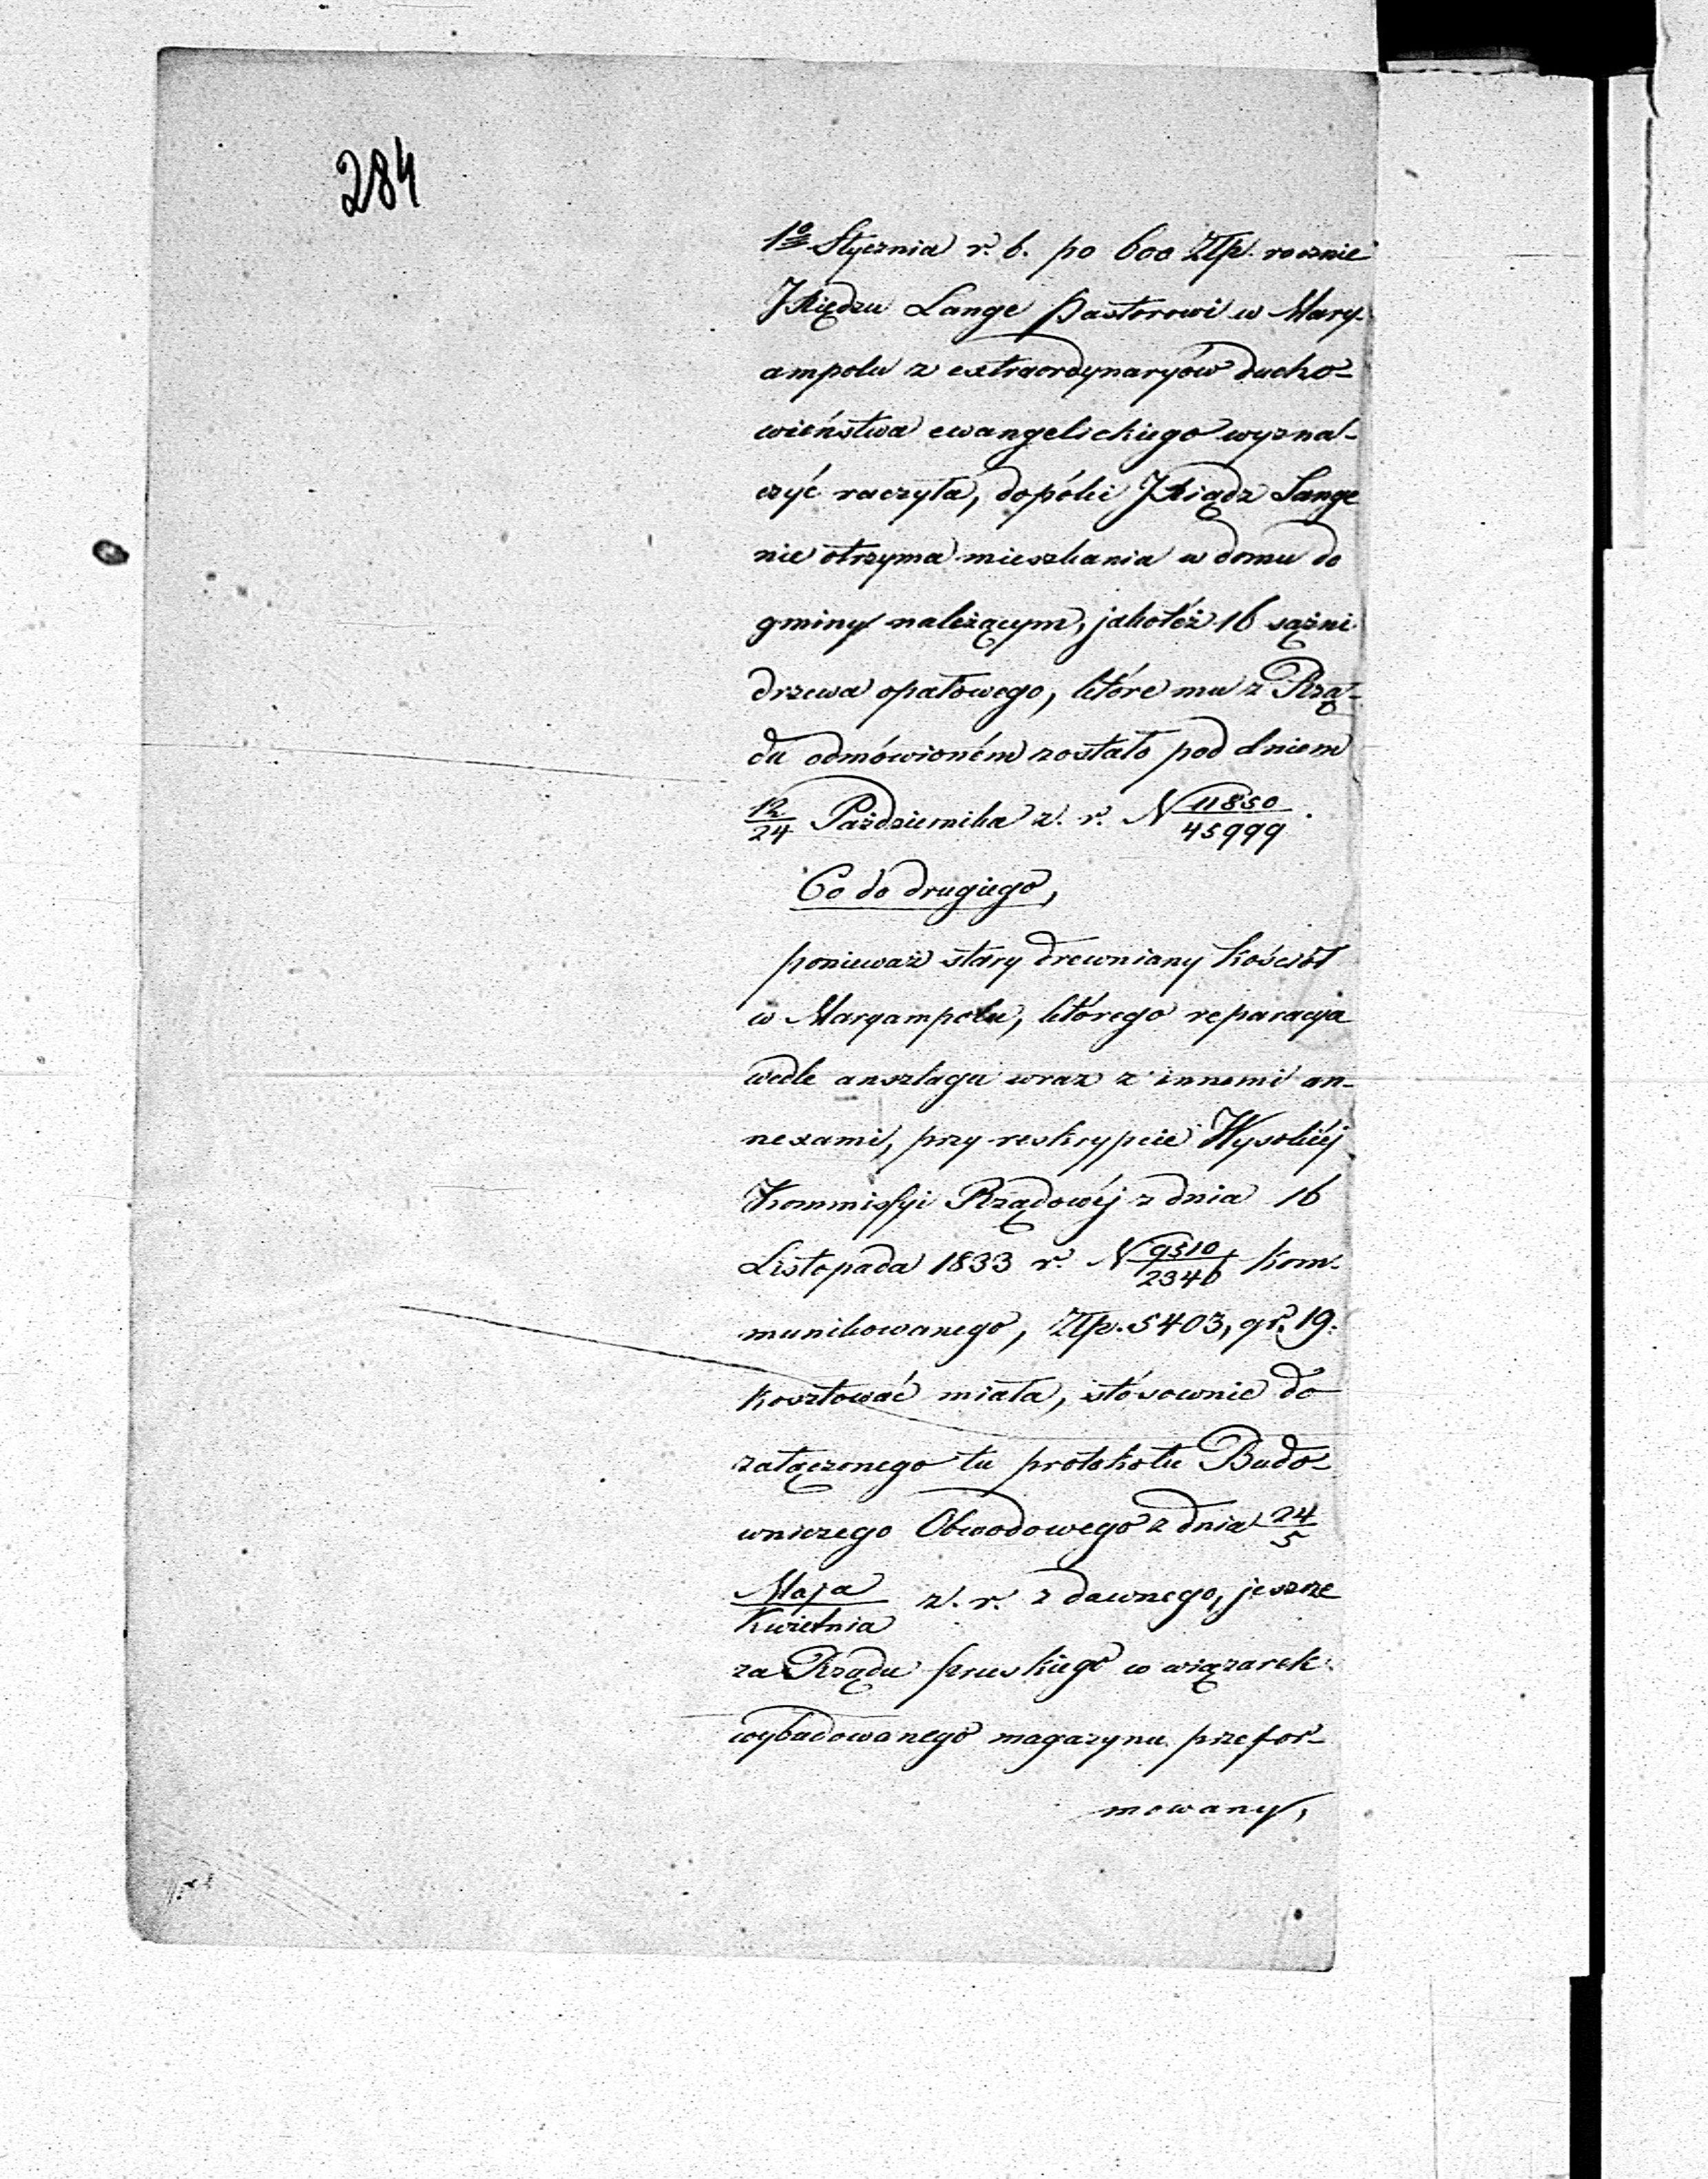 284
1º Stycznia r. b. po 600 Złp. rocznie
JXiędzu Lange Pastorowi w Mary-
ampolu z extraordynaryów ducho-
wieństwa ewangelickiego wyzna-
czyć raczyła, dopóki JXiądz Lange
nie otrzyma mieszkania w domu do
gminy należącym, jakotéż 16 sążni
drzewa opałowego, które mu z Rzą-
du odmówioném zostało pod dniem
12/24 Października z. r. N 11850/45999.
Co do drugiego,
ponieważ stary drewniany kościół
w Maryampolu, którego reparacya
wedle anszlagu wraz z innemi an-
nexami, przy reskrypcie Wysokiéj
Kommissyi Rządowéj z dnia 16
Listopada 1833 r. N 9510/2346 kom-
munikowanego, Złp. 5403, gr. 19.
kosztować miała, stósownie do
załączonego tu protokołu Budo-
wniczego Obwodowego z dnia 24/5
Maja/Kwietnia z. r. z dawnego, jeszcze
za Rządu pruskiego w wiązarek
wybudowanego magazynu przefor-
mowany,